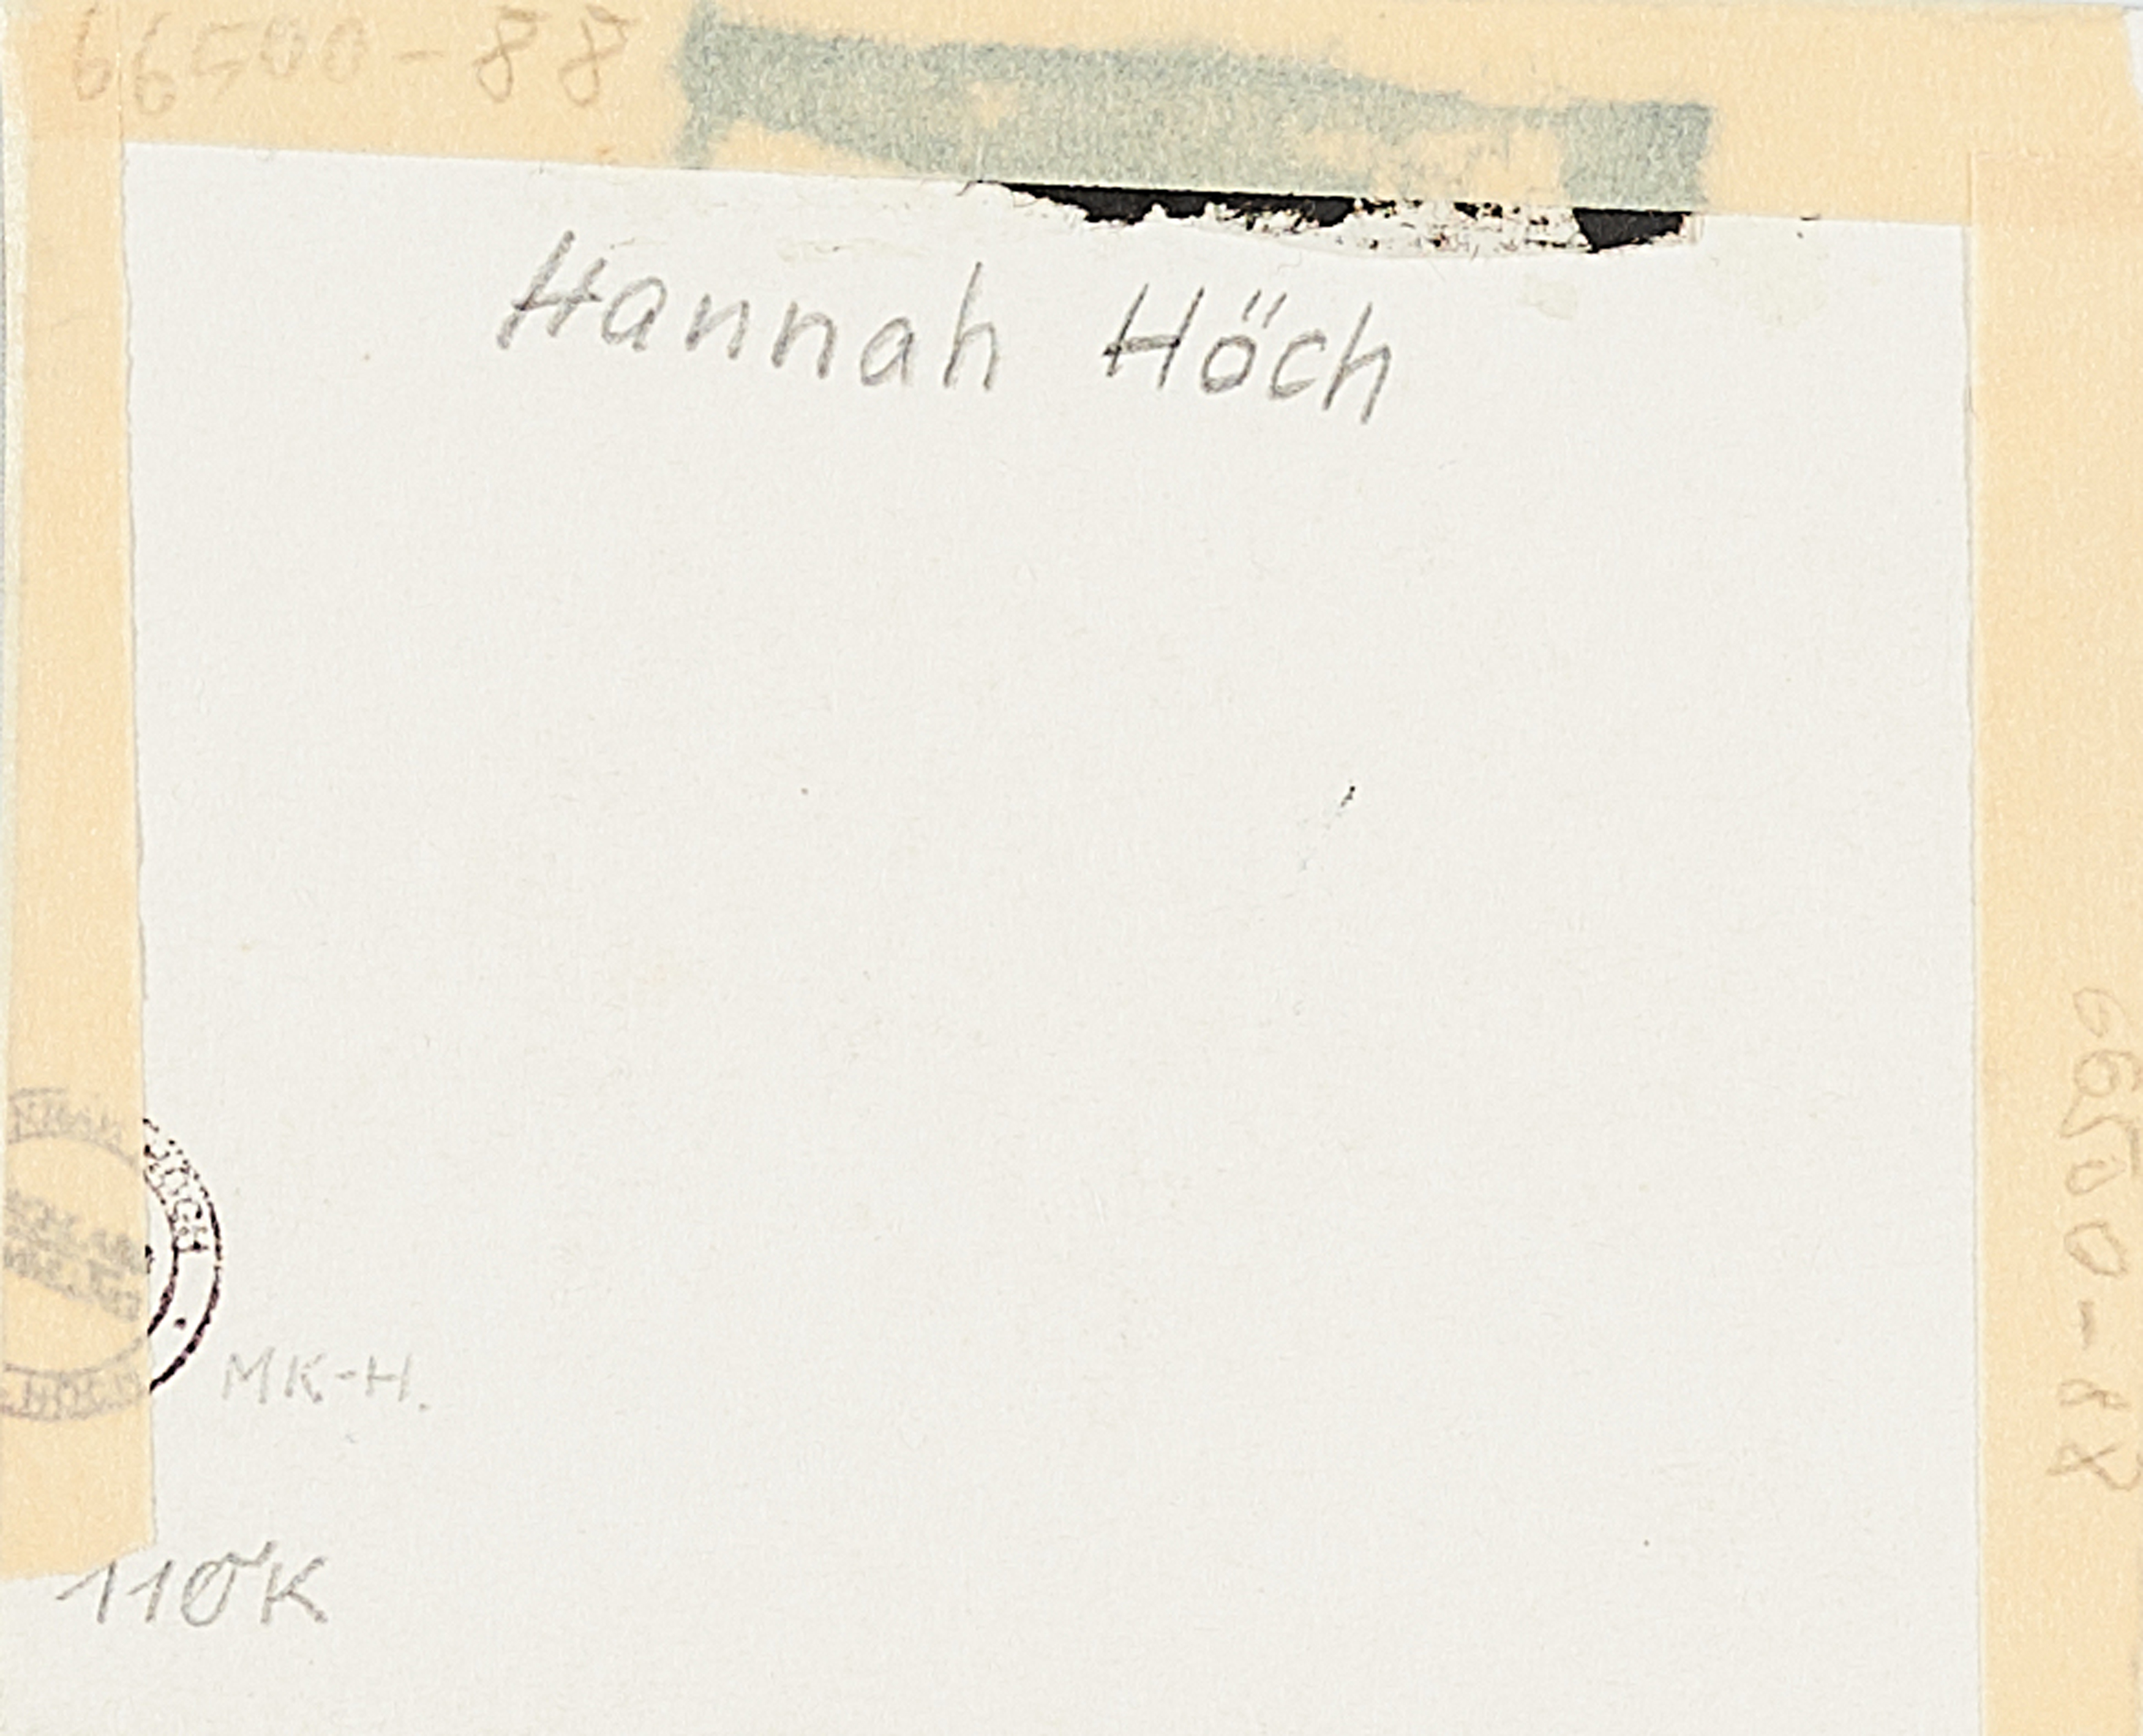 66500-88
Hannah Höch
66500-88
HÖCH
MK-H.
110K